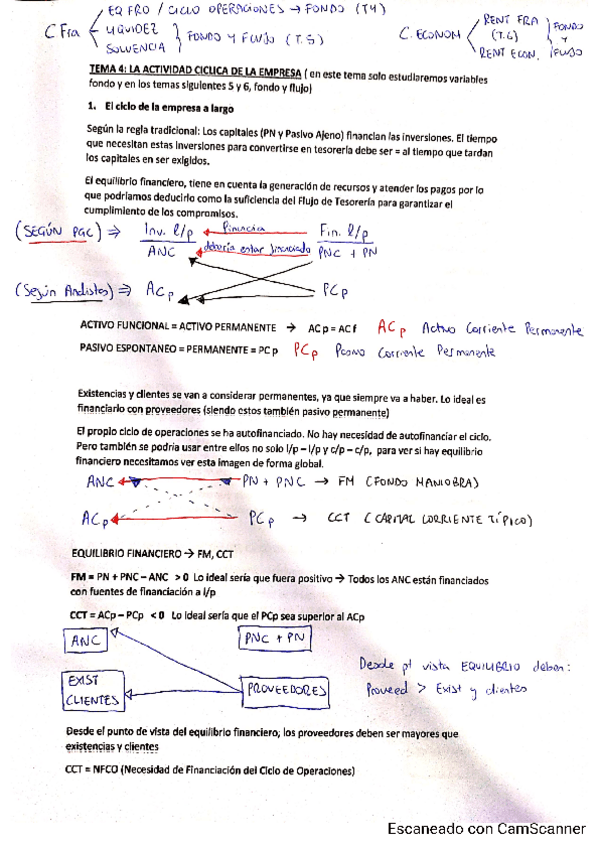 EQ FRO / CICLO OPERACIONES → FONDO (T4)
C Fra
LIQUIDEZ
SOLVENCIA
FONDO Y FLUJO (T.5)
C. ECONOM
RENT FRA
(T.6)
RENT ECON.
FONDO
Y
FLUJO
TEMA 4: LA ACTIVIDAD CICLICA DE LA EMPRESA ( en este tema solo estudiaremos variables
fondo y en los temas siguientes 5 y 6, fondo y flujo)
1. El ciclo de la empresa a largo
Según la regla tradicional: Los capitales (PN y Pasivo Ajeno) financian las inversiones. El tiempo
que necesitan estas inversiones para convertirse en tesorería debe ser = al tiempo que tardan
los capitales en ser exigidos.
El equilibrio financiero, tiene en cuenta la generación de recursos y atender los pagos por lo
que podríamos deducirlo como la suficiencia del Flujo de Tesorería para garantizar el
cumplimiento de los compromisos.
(SEGÚN PGC) ⇒ Inv. l/p financia Fin. l/p
ANC debería estar financiado PNC + PN
(Según Analistas) ⇒ ACp PCp
ACTIVO FUNCIONAL = ACTIVO PERMANENTE → ACp = ACf ACp Activo Corriente Permanente
PASIVO ESPONTANEO = PERMANENTE = PCp PCp Pasivo Corriente Permanente
Existencias y clientes se van a considerar permanentes, ya que siempre va a haber. Lo ideal es
financiarlo con proveedores (siendo estos también pasivo permanente)
El propio ciclo de operaciones se ha autofinanciado. No hay necesidad de autofinanciar el ciclo.
Pero también se podría usar entre ellos no solo l/p – l/p y c/p – c/p, para ver si hay equilibrio
financiero necesitamos ver esta imagen de forma global.
ANC PN + PNC → FM (FONDO MANIOBRA)
ACp PCp → CCT (CAPITAL CORRIENTE TÍPICO)
EQUILIBRIO FINANCIERO → FM, CCT
FM = PN + PNC – ANC > 0 Lo ideal sería que fuera positivo → Todos los ANC están financiados
con fuentes de financiación a l/p
CCT = ACp – PCp < 0 Lo ideal sería que el PCp sea superior al ACp
ANC PNC + PN
EXIST
CLIENTES
PROVEEDORES
Desde pt vista EQUILIBRIO deben:
Proveed > Exist y clientes
Desde el punto de vista del equilibrio financiero, los proveedores deben ser mayores que
existencias y clientes
CCT = NFCO (Necesidad de Financiación del Ciclo de Operaciones)
Escaneado con CamScanner